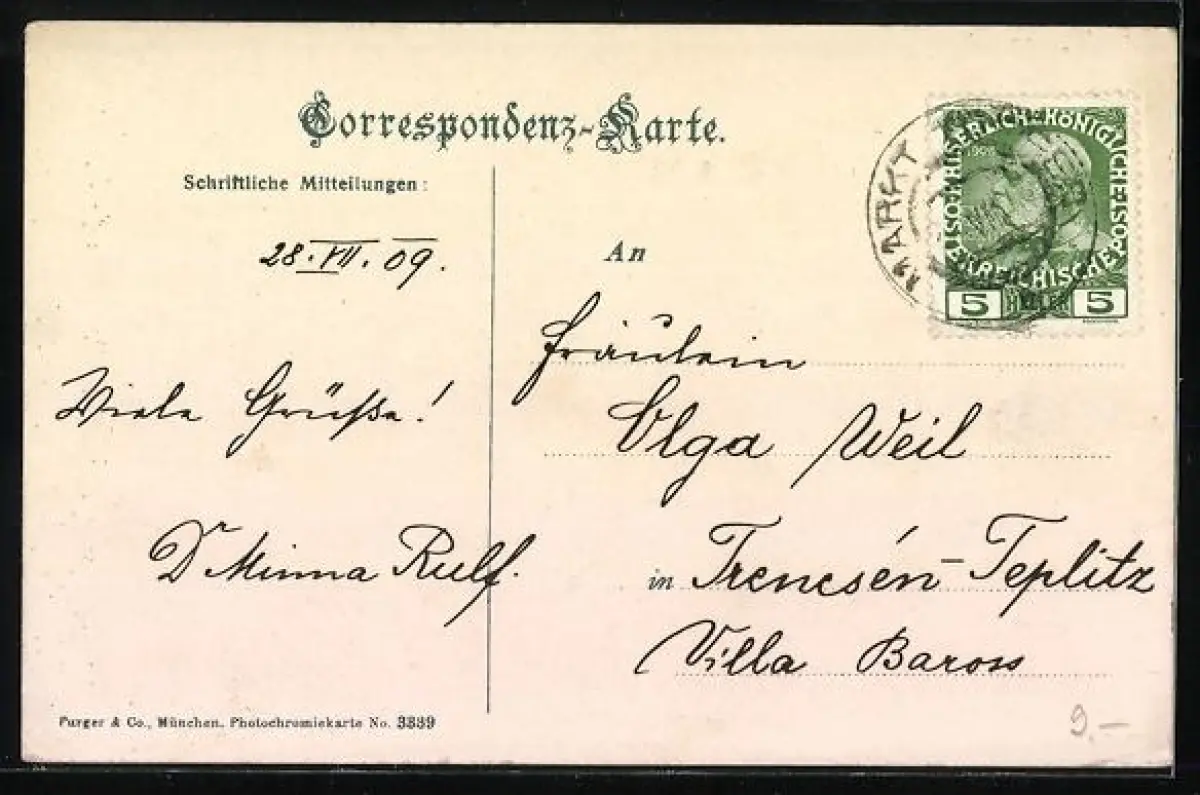 Correspondenz-Karte.
Schriftliche Mitteilungen:
28.VII.09.
Viele Grüße!
Dr Minna Rulf.
An
Fräulein
Olga Weil
in Trencsén-Teplitz
Villa Baross
MARKT
KAISERLICHE KÖNIGLICHE POST
ÖSTERREICHISCHE
1908
5 HELLER 5
Purger & Co., München. Photochromiekarte No. 3339
9.-